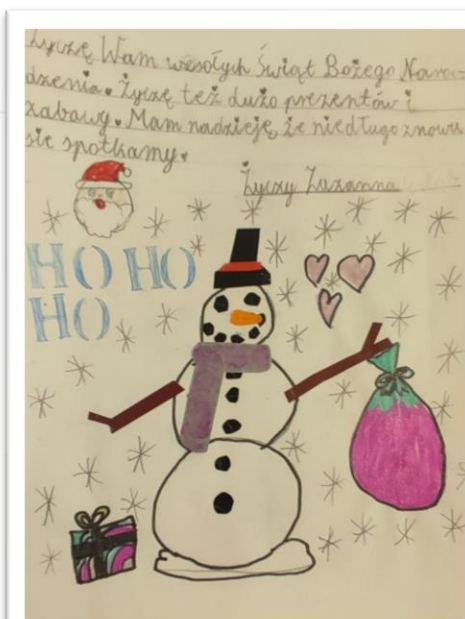 Życzę Wam wesołych Świąt Bożego Naro-
dzenia. Życzę też dużo prezentów i
zabawy. Mam nadzieję, że niedługo znowu
się spotkamy.
Życzy Zuzanna
HO HO
HO